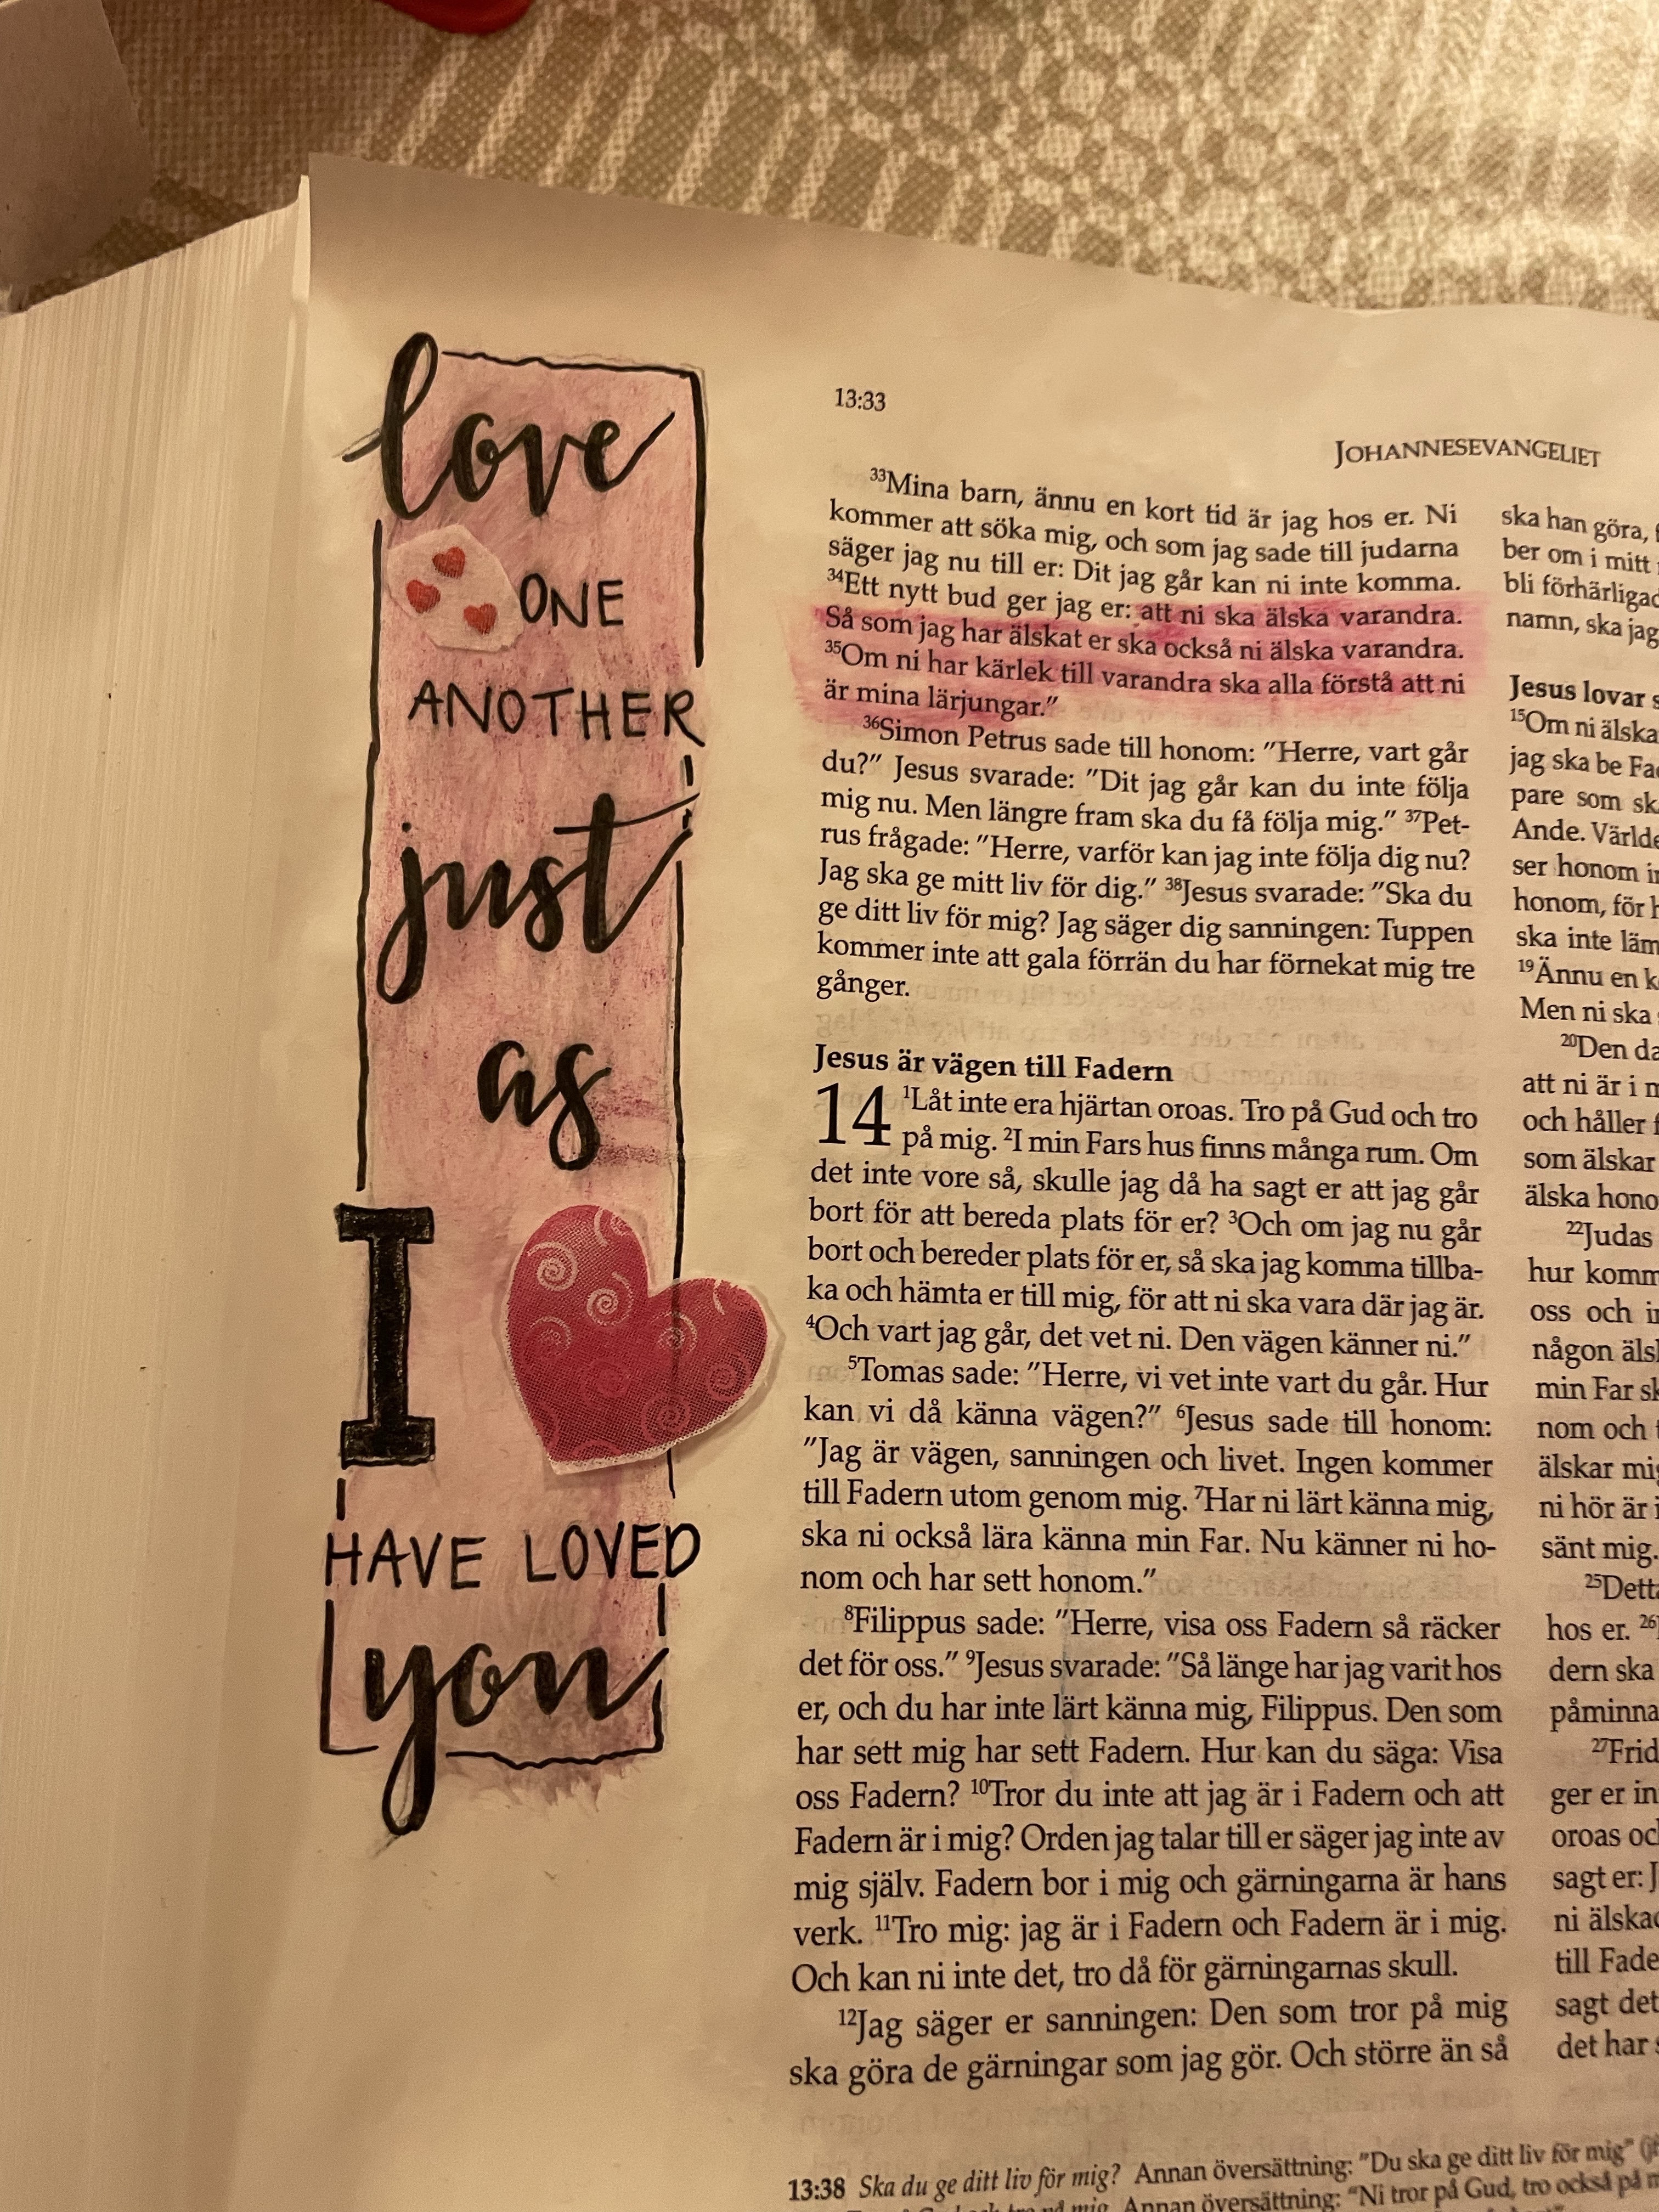 love
ONE
ANOTHER
just
as
I
HAVE LOVED
you
13:33
JOHANNESEVANGELIET
33Mina barn, ännu en kort tid är jag hos er. Ni
kommer att söka mig, och som jag sade till judarna
säger jag nu till er: Dit jag går kan ni inte komma.
34Ett nytt bud ger jag er: att ni ska älska varandra.
Så som jag har älskat er ska också ni älska varandra.
35Om ni har kärlek till varandra ska alla förstå att ni
är mina lärjungar.”
36Simon Petrus sade till honom: ”Herre, vart går
du?” Jesus svarade: ”Dit jag går kan du inte följa
mig nu. Men längre fram ska du få följa mig.” 37Pet-
rus frågade: ”Herre, varför kan jag inte följa dig nu?
Jag ska ge mitt liv för dig.” 38Jesus svarade: ”Ska du
ge ditt liv för mig? Jag säger dig sanningen: Tuppen
kommer inte att gala förrän du har förnekat mig tre
gånger.
Jesus är vägen till Fadern
14 1Låt inte era hjärtan oroas. Tro på Gud och tro
på mig. 2I min Fars hus finns många rum. Om
det inte vore så, skulle jag då ha sagt er att jag går
bort för att bereda plats för er? 3Och om jag nu går
bort och bereder plats för er, så ska jag komma tillba-
ka och hämta er till mig, för att ni ska vara där jag är.
4Och vart jag går, det vet ni. Den vägen känner ni.”
5Tomas sade: ”Herre, vi vet inte vart du går. Hur
kan vi då känna vägen?” 6Jesus sade till honom:
”Jag är vägen, sanningen och livet. Ingen kommer
till Fadern utom genom mig. 7Har ni lärt känna mig,
ska ni också lära känna min Far. Nu känner ni ho-
nom och har sett honom.”
8Filippus sade: ”Herre, visa oss Fadern så räcker
det för oss.” 9Jesus svarade: ”Så länge har jag varit hos
er, och du har inte lärt känna mig, Filippus. Den som
har sett mig har sett Fadern. Hur kan du säga: Visa
oss Fadern? 10Tror du inte att jag är i Fadern och att
Fadern är i mig? Orden jag talar till er säger jag inte av
mig själv. Fadern bor i mig och gärningarna är hans
verk. 11Tro mig: jag är i Fadern och Fadern är i mig.
Och kan ni inte det, tro då för gärningarnas skull.
12Jag säger er sanningen: Den som tror på mig
ska göra de gärningar som jag gör. Och större än så
ska han göra,
ber om i mitt
bli
namn, ska jag
Jesus lovar
15Om ni
jag ska be
pare som
Ande.
ser honom
honom, för
ska inte
19Ännu en
Men ni ska
20Den
att ni är i
och håller
som älskar
älska
22Judas
hur
oss och
någon
min Far
nom och
älskar
ni hör är
sänt mig.
25
hos er.
dern ska
27
ger er
oroas
sagt er:
ni
till
sagt det
det har
13:38 Ska du ge ditt liv för mig? Annan översättning: ”Du ska ge ditt liv för mig”
Annan översättning: ”Ni tror på Gud, tro också på